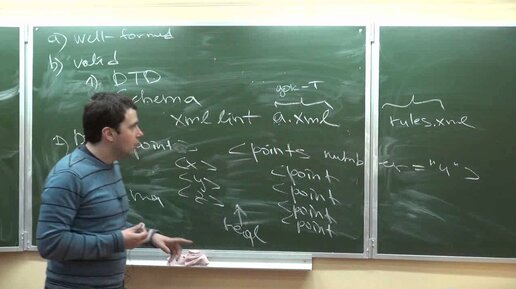 a) well-formed
b) valid
1) DTD
Schema
док-т
xmllint a.xml rules.xml
point
<x>
<y>
<z>
real
<points number="4">
<point
<point
<point
<point